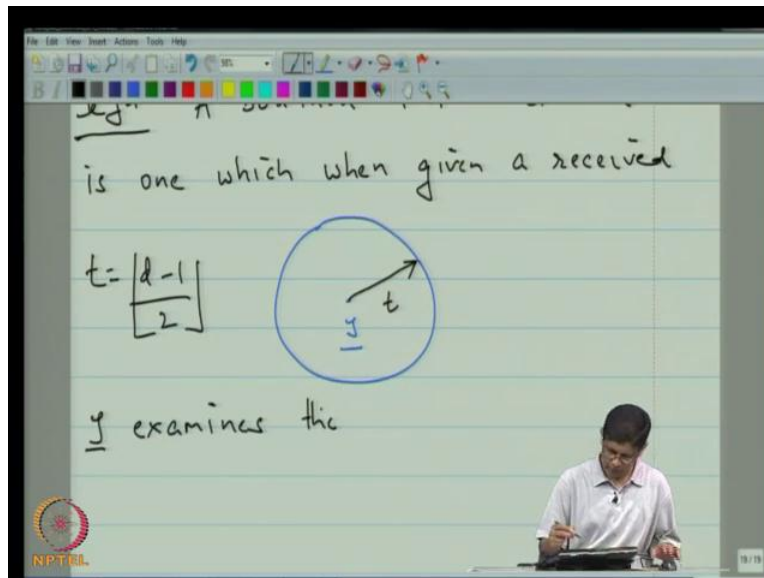 File Edit View Insert Actions Tools Help
98%
B I
is one which when given a received
t = ⌊(d-1)/2⌋
t
y
y examines the
NPTEL
19/19